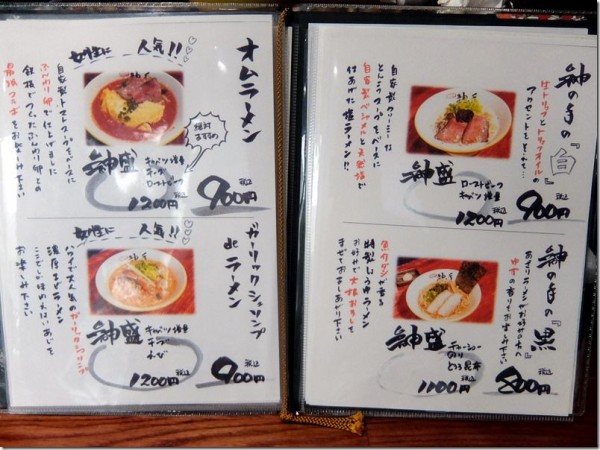 神の手の『白』
はトリュフとナッツオイルの
アクセントをそえて…
自家製クリーミーな
とんこつスープをベースに
自家製ベシャメルと天然塩で
仕あげた塩ラーメン!!
神盛
ローストビーフ
キャベツ増量
1200円
税込
900円
神の手の『黒』
あっさりラーメンがお好きな方の
ゆずの香りでお楽しみ下さい
魚介ダシが香る
特製しょうゆラーメン
お好みで大根おろしを
まぜてお召しあがり下さい
神盛
チャーシュー
のり
とろろ昆布
1100円
税込
800円
オムラーメン
女性に人気!!
絶対おすすめ
自家製トマトソースをベースに
ふんわり卵で仕上げました
神盛
キャベツ増量
チーズ
ローストビーフ
1200円
税込
900円
ガーリックシュリンプ
de
ラーメン
女性に人気!!
ハワイで大人気のガーリックシュリンプ
濃厚まぜラーメン
ここでしか味わえないあじを
お楽しみ下さい
神盛
キャベツ増量
チーズ
えび
1200円
税込
900円